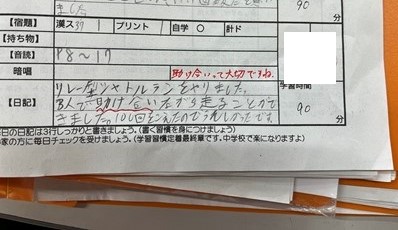 きました
90
分
【宿題】 漢ス37 プリント 自学 ○ 計ド
【持ち物】
【音読】 P8〜17
暗唱 助け合いって大切ですね。
学習時間
【日記】 リレー型シャトルランをやりました。
8人で助け合いながら走ることがで 90
きました。100回をこえたのでうれしかったです。 分
日の日記は3行しっかりと書きましょう。(書く習慣を身につけましょう)
家の方に毎日チェックを受けましょう。(学習習慣定着最終章です。中学校で楽になりますよ)